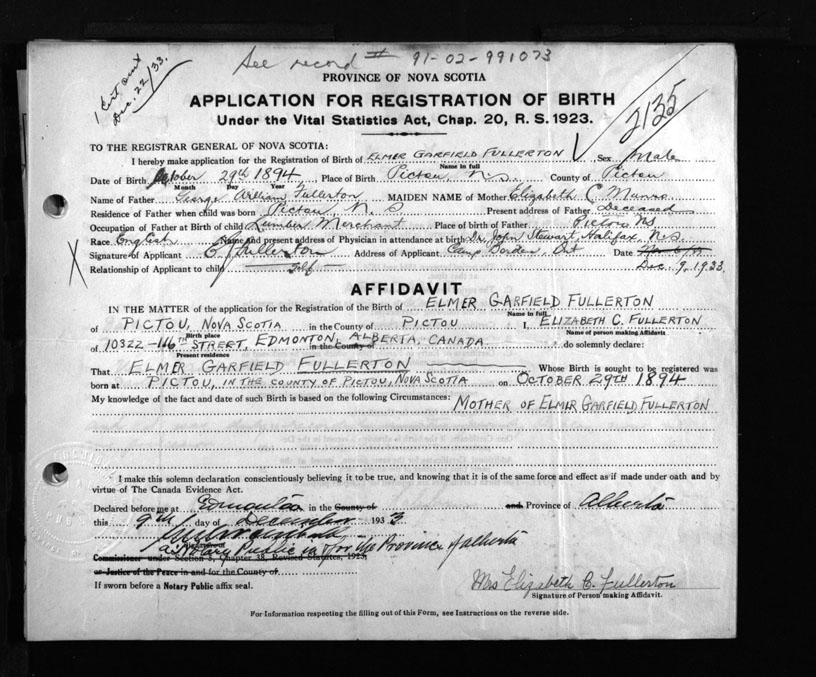 See record # 91-02-991073
1 Cert sent
Dec. 22/33.
PROVINCE OF NOVA SCOTIA
2135
APPLICATION FOR REGISTRATION OF BIRTH
Under the Vital Statistics Act, Chap. 20, R. S. 1923.
TO THE REGISTRAR GENERAL OF NOVA SCOTIA:
I hereby make application for the Registration of Birth of ELMER GARFIELD FULLERTON Sex Male
Name in full
Date of Birth October 29th 1894 Place of Birth Pictou, N.S County of Pictou
Month Day Year
Name of Father George William Fullerton MAIDEN NAME of Mother Elizabeth C. Munro
Residence of Father when child was born Pictou, N. S Present address of Father Deceased
Occupation of Father at Birth of child Lumber Merchant Place of birth of Father Pictou NS
Race English Name and present address of Physician in attendance at birth Dr. John Stewart, Halifax, N.S.
Signature of Applicant E G Fullerton Address of Applicant Camp Borden, Ont Date
Relationship of Applicant to child self Dec. 9, 1933.
X
AFFIDAVIT
IN THE MATTER of the application for the Registration of the Birth of ELMER GARFIELD FULLERTON
Name in full
of PICTOU, NOVA SCOTIA in the County of PICTOU I, ELIZABETH C. FULLERTON
Birth place Name of person making Affidavit.
of 10322-116TH STREET, EDMONTON, ALBERTA, CANADA do solemnly declare:
in the County of
Present residence
That ELMER GARFIELD FULLERTON Whose Birth is sought to be registered was
born at PICTOU, IN THE COUNTY OF PICTOU, NOVA SCOTIA on OCTOBER 29TH 1894
My knowledge of the fact and date of such Birth is based on the following Circumstances: MOTHER OF ELMER GARFIELD FULLERTON
I make this solemn declaration conscientiously believing it to be true, and knowing that it is of the same force and effect as if made under oath and by
virtue of The Canada Evidence Act.
Declared before me at Edmonton in the County of and Province of Alberta
this 9th day of December 1933
a Notary Public in & for the Province of Alberta
Commissioner under Section 8, Chapter 38, Revised Statutes, 1923,
or Justice of the Peace in and for the County of
If sworn before a Notary Public affix seal.
Mrs Elizabeth C. Fullerton
Signature of Person making Affidavit.
For Information respecting the filling out of this Form, see Instructions on the reverse side.